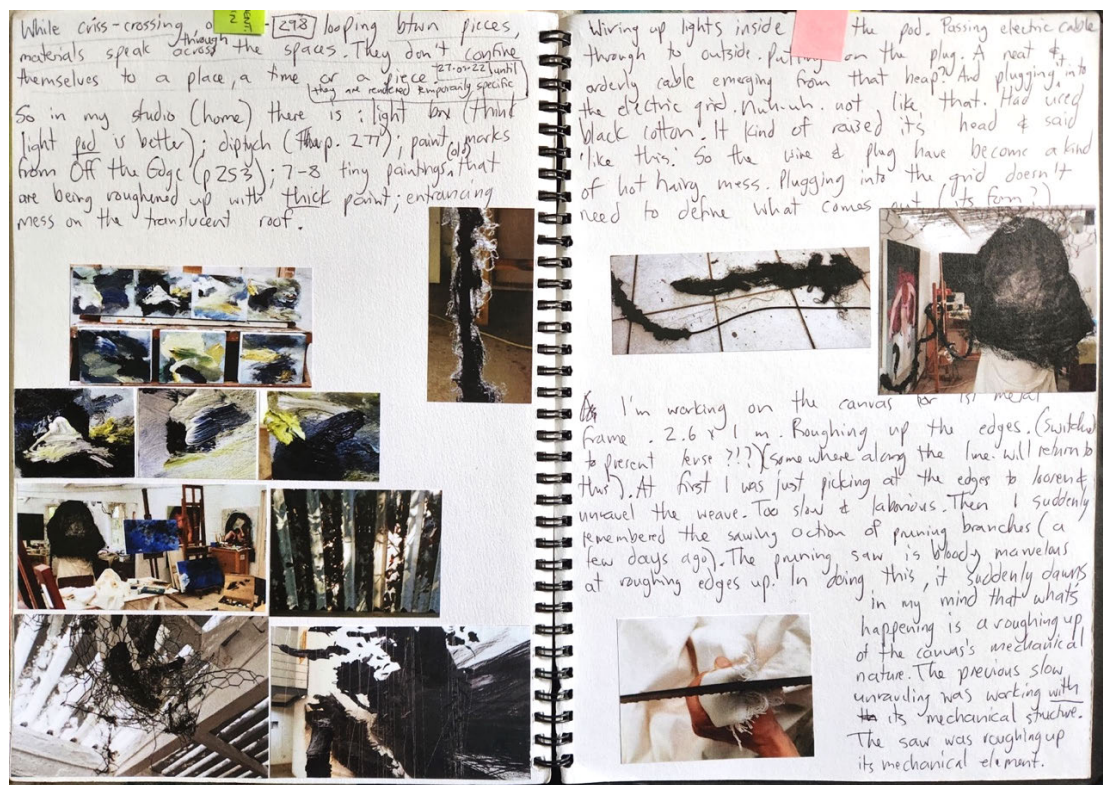 While criss-crossing o 298 looping btwn pieces,
materials speak through across the spaces. They don't confine
themselves to a place, a time or a piece 27-01-22 until
they are rendered temporarily specific
So in my studio (home) there is: light box (think
light pod is better); diptych (p. 277); paint marks
from Off the Edge (p253); 7-8 tiny paintings (old) that
are being roughened up with thick paint; entrancing
mess on the translucent roof.
Wiring up lights inside the pod. Passing electric cable
through to outside. Putting on the plug. A neat &
orderly cable emerging from that heap? And plugging it into
the electric grid. Nuh-uh. not like that. Had used
black cotton. It kind of raised it's head & said
'like this. So the wire & plug have become a kind
of hot hairy mess. Plugging into the grid doesn't
need to define what comes out (its form?)
I'm working on the canvas for 1st metal
frame. 2.6 x 1 m. Roughing up the edges. (Switched
to present tense ?!?) (somewhere along the line. Will return to
this). At first I was just picking at the edges to loosen &
unravel the weave. Too slow & laborious. Then I suddenly
remembered the sawing action of pruning branches (a
few days ago). The pruning saw is bloody marvelous
at roughing edges up. In doing this, it suddenly dawns
in my mind that whats
happening is a roughing up
of the canvas's mechanical
nature. The previous slow
unravling was working with
its mechanical structure.
The saw was roughing up
its mechanical element.